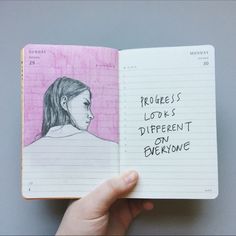 SUNDAY
29
MONDAY
30
PROGRESS
LOOKS
DIFFERENT
ON
EVERYONE